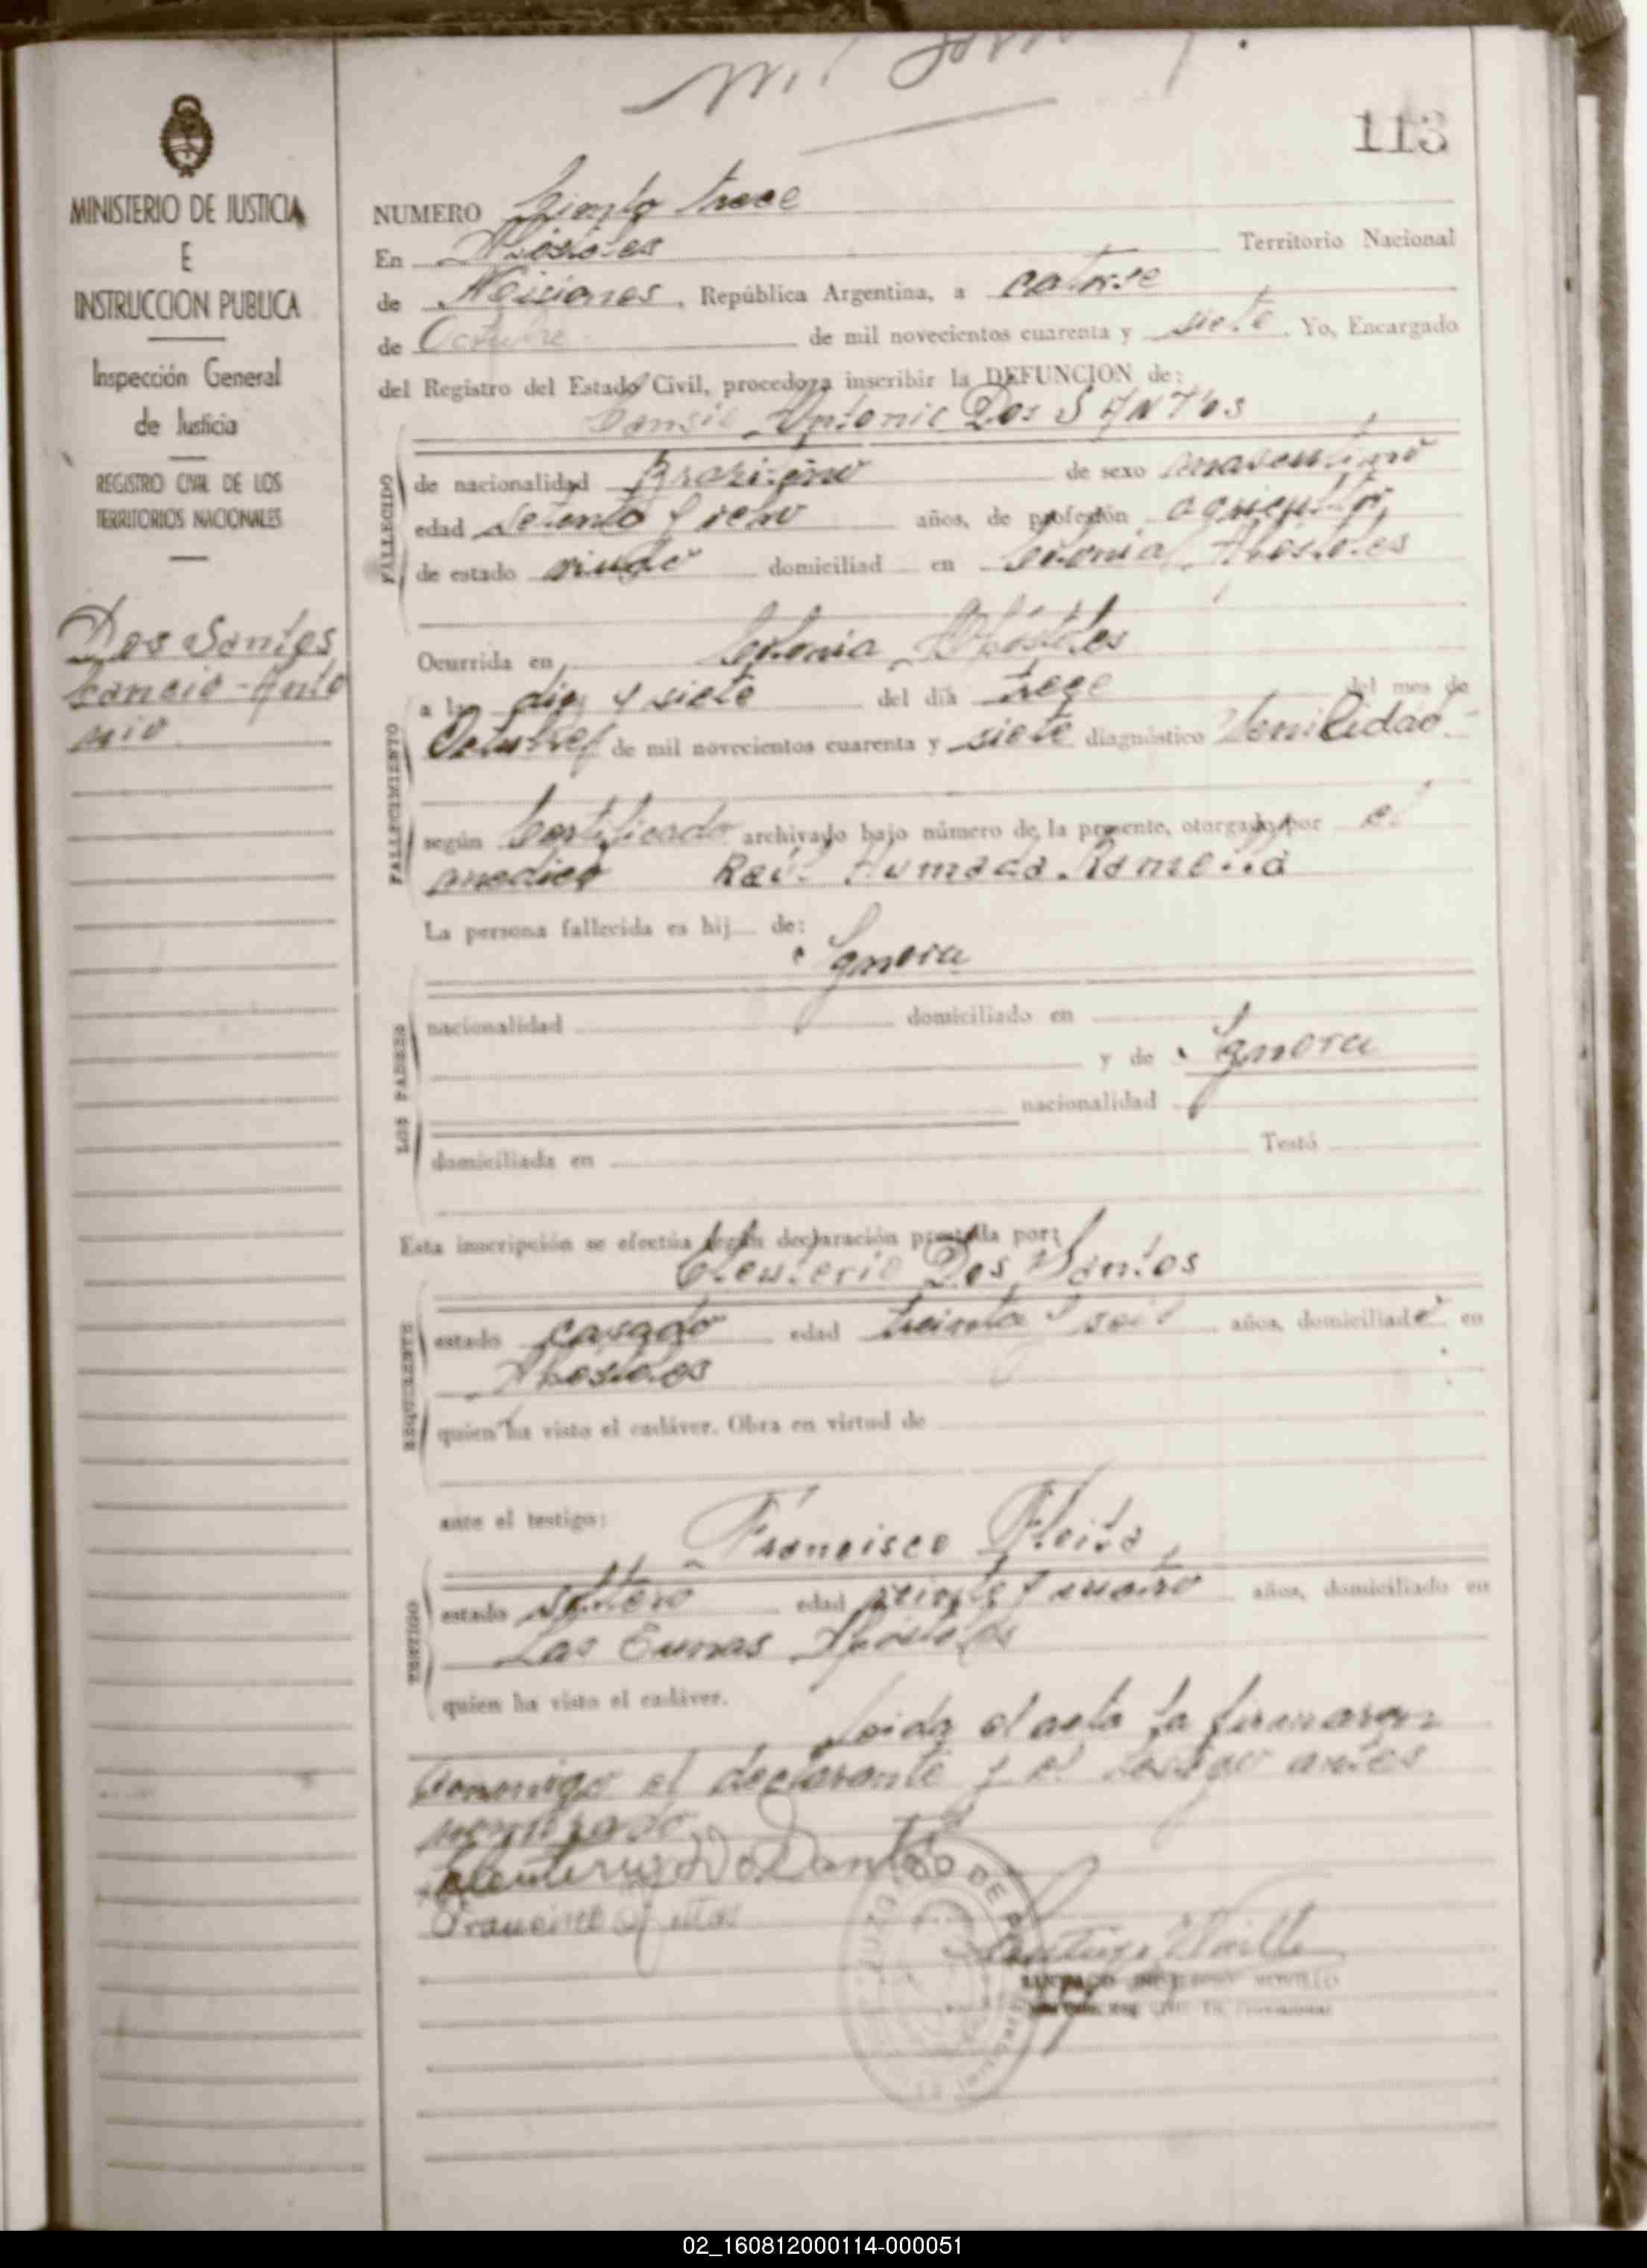 113
MINISTERIO DE JUSTICIA
E
INSTRUCCION PUBLICA
Inspección General
de Justicia
REGISTRO CIVIL DE LOS
TERRITORIOS NACIONALES
Dos Santos
Cancio - Anto
nio
NUMERO Ciento trece
En Apóstoles Territorio Nacional
de Misiones, República Argentina, a catorse
de Octubre de mil novecientos cuarenta y siete Yo, Encargado
del Registro del Estado Civil, procedo a inscribir la DEFUNCION de:
Cansio Antonio Dos SANTOS
FALLECIDO
de nacionalidad Brasilero de sexo masculino
edad setenta y años, de profesión agricultor
de estado viudo domiciliad en Colonia Apóstoles
FALLECIMIENTO
Ocurrida en Colonia Apóstoles
a las diez y siete del día trece del mes de
Octubre de mil novecientos cuarenta y siete diagnóstico Senilidad
según Certificado archivado bajo número de la presente, otorgado por el
medico Raúl Humada
La persona fallecida es hij de:
LOS PADRES
Ignora
nacionalidad domiciliado en
y de Ignora
nacionalidad
domiciliada en Testó
Esta inscripción se efectúa según declaración prestada por:
REQUIRENTE
Eleuterio Dos Santos
estado casado edad treinta y seis años, domiciliado en
Apóstoles
quien ha visto el cadáver. Obra en virtud de
ante el testigo:
TESTIGO
Francisco Fleita
estado soltero edad veinte y cuatro años, domiciliado en
Las Tunas Apóstoles
quien ha visto el cadáver.
Leida el acta la firmaron
conmigo el declarante y el testigo antes
nombrado
Eleuterio Do Santo
Francisco
SANTIAGO MORILLO
02_160812000114-000051